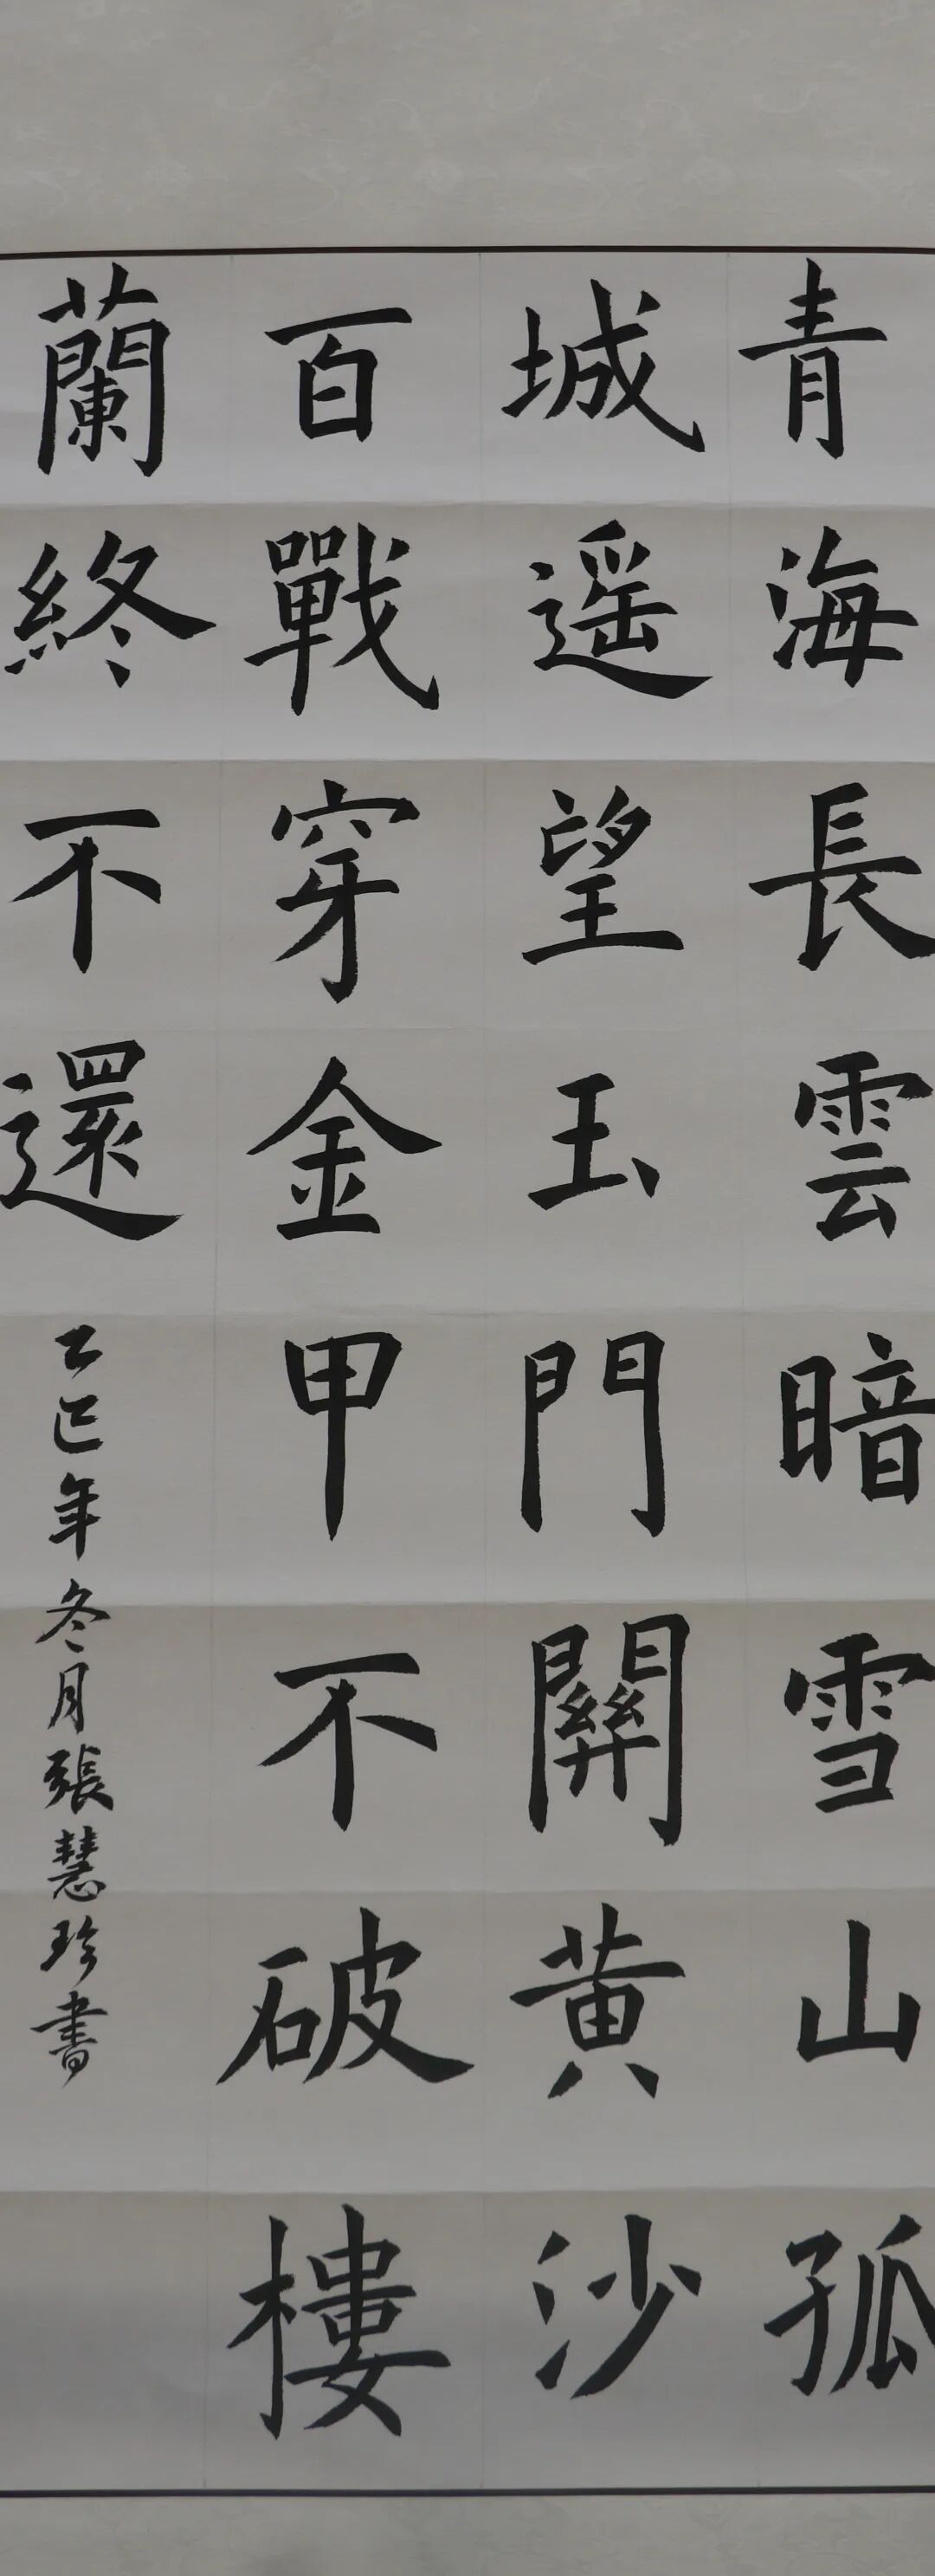 青海長雲暗雪山孤
城遥望玉門關黄沙
百戰穿金甲不破樓
蘭終不還
乙巳年冬月張慧珍書